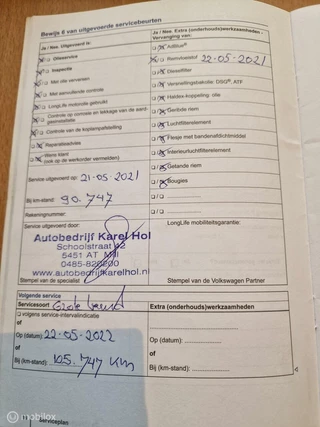 Bewijs 6 van uitgevoerde servicebeurten
Ja / Nee, Uitgevoerd is:
Olieservice
Inspectie
Met olie verversen
Met aanvullende controle
LongLife motorolie gebruikt
Controle op corrosie en lekkage van de aardgasinstallatie
Controle van de koplampafstelling
Reparatieadvies
Warte klant
(ook op de werkorder vermelden)
Service uitgevoerd op: 21-05-2021
Bij km-stand: 90.747
Rekeningnummer:
Service uitgevoerd door:
Autobedrijf Karel Hol
Schoolstraat 42
5451 AT Mill
www.autobedrijfkarelhol.nl
Stempel van de specialist
Ja / Nee, Extra (onderhouds)werkzaamheden -
Vervanging van:
AdBlue®
Remvloeistof 22-05-2021
Dieselfilter
Versnellingsbakolie: DSG®, ATF
Haldex-koppeling: olie
Geribde riem
Luchtfilterelement
Flesje met bandenafdichtmiddel
Interieurluchtfilterelement
Getande riem
Bougies
LongLife mobiliteitsgarantie:
Stempel van de Volkswagen Partner
Volgende service
Servicesoort: Grote beurt
volgens service-intervalindicatie
of
Op (datum): 22-05-2022
of
Bij (km-stand): 105.747 KM
Extra (onderhouds)werkzaamheden
Op (datum):
of
Bij (km-stand):
Serviceplan
mobilox